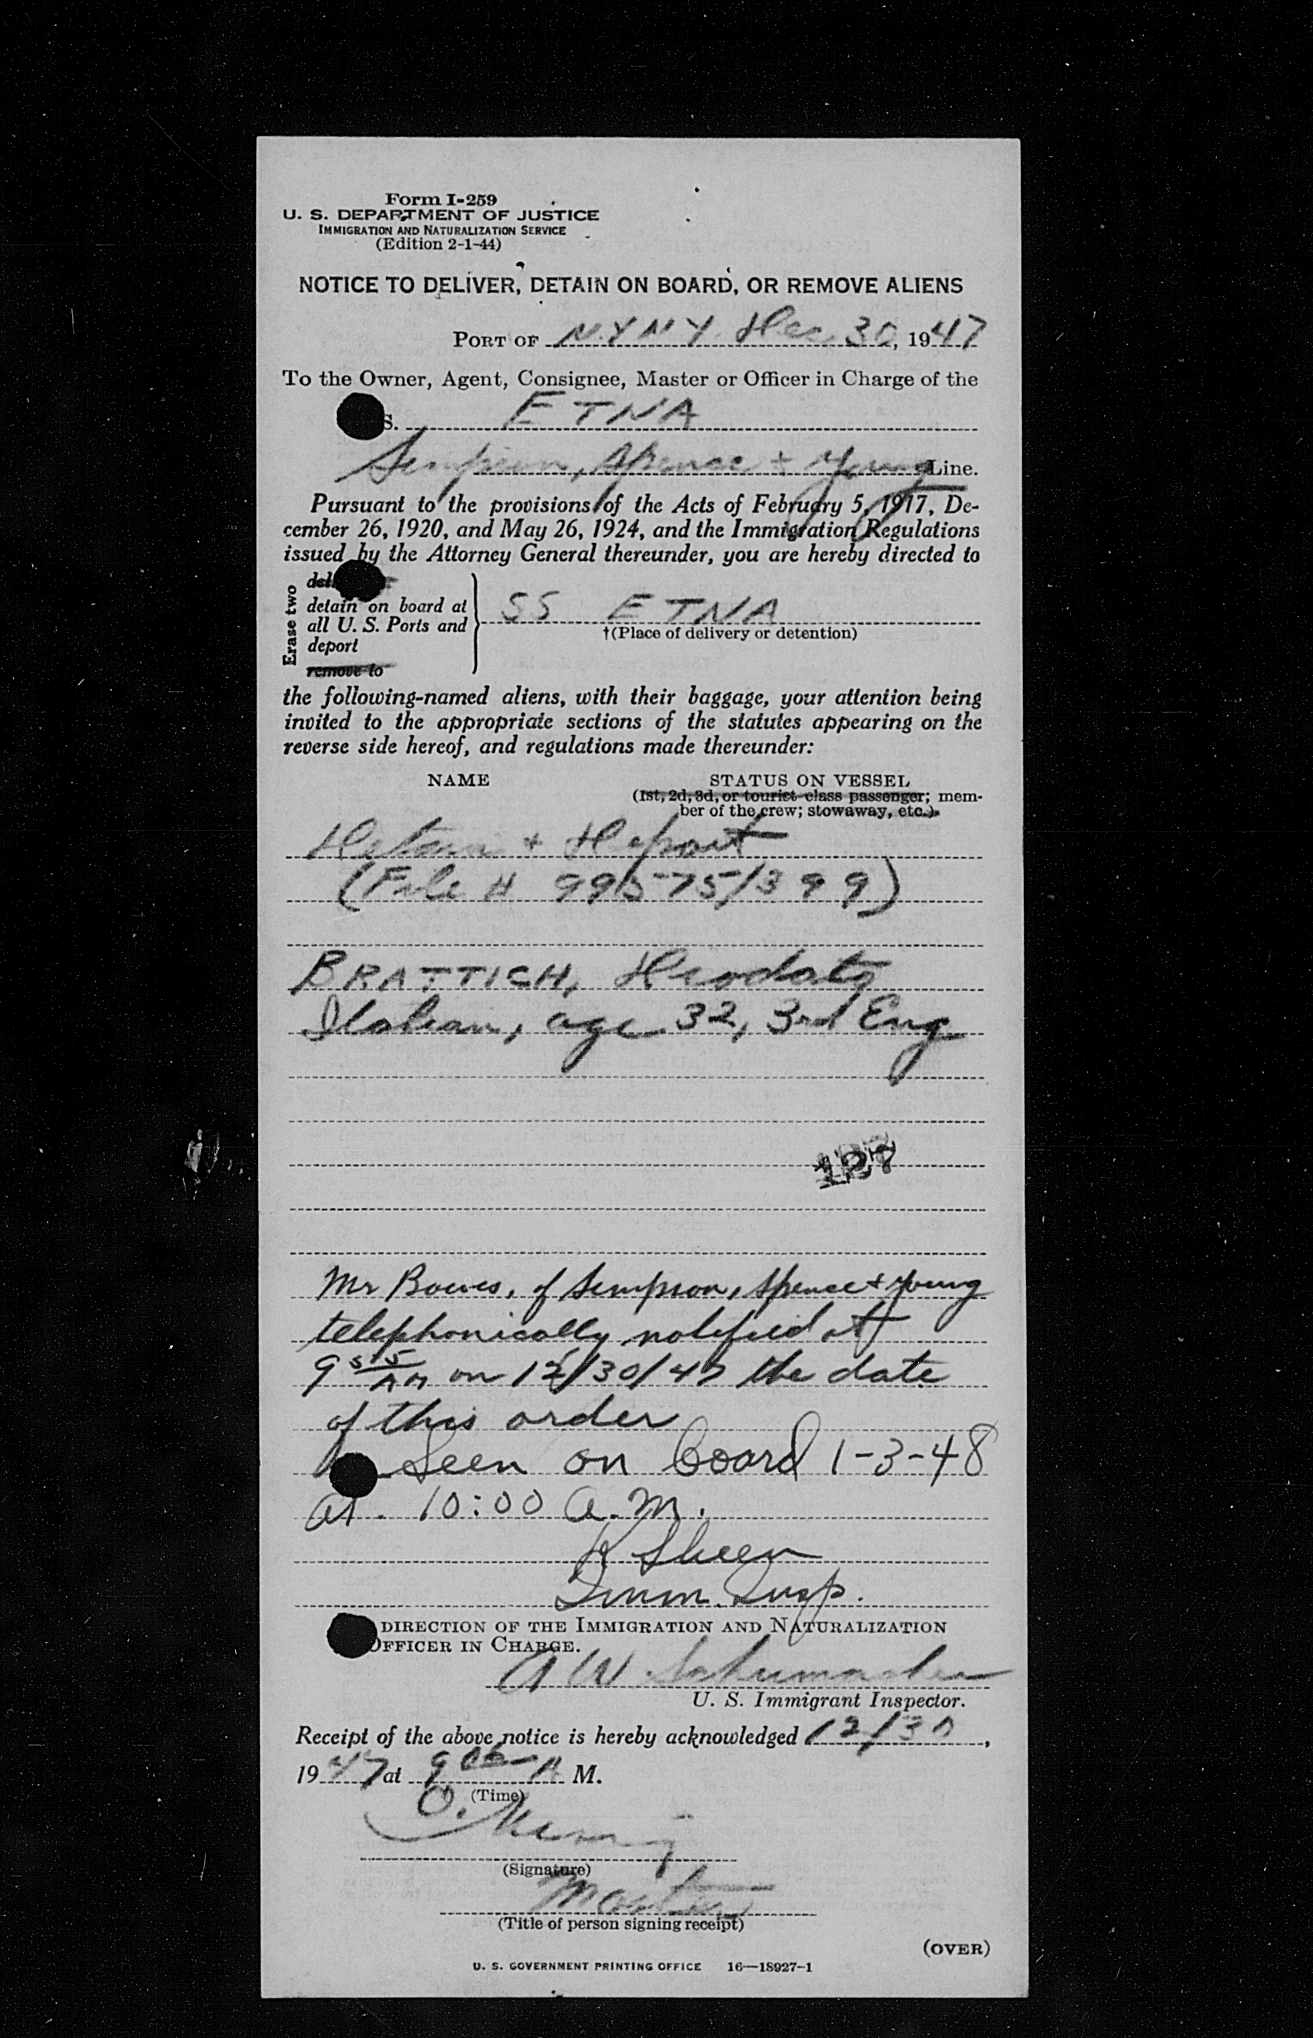 Form I-259
U. S. DEPARTMENT OF JUSTICE
IMMIGRATION AND NATURALIZATION SERVICE
(Edition 2-1-44)
NOTICE TO DELIVER, DETAIN ON BOARD, OR REMOVE ALIENS
PORT OF N.Y N Y. Dec 30, 1947
To the Owner, Agent, Consignee, Master or Officer in Charge of the
S. ETNA
Simpson, Spence + Young Line.
Pursuant to the provisions of the Acts of February 5, 1917, De-
cember 26, 1920, and May 26, 1924, and the Immigration Regulations
issued by the Attorney General thereunder, you are hereby directed to
Erase two
detain on board at
all U. S. Ports and
deport
remove to
SS ETNA
†(Place of delivery or detention)
the following-named aliens, with their baggage, your attention being
invited to the appropriate sections of the statutes appearing on the
reverse side hereof, and regulations made thereunder:
NAME STATUS ON VESSEL
(1st, 2d, 3d, or tourist class passenger; mem-
ber of the crew; stowaway, etc.)
Detain + Deport
(File # 99575/399)
BRATTICH, Diodato
Italian, age 32, 3rd Eng
127
Mr Bowes, of Simpson, Spence + Young
telephonically notified at
9 55 AM on 12/30/47 the date
of this order
Seen on board 1-3-48
at. 10:00 a.m.
Sheen
Imm. Insp.
DIRECTION OF THE IMMIGRATION AND NATURALIZATION
OFFICER IN CHARGE.
A W Schumacher
U. S. Immigrant Inspector.
Receipt of the above notice is hereby acknowledged 12/30,
1947 at 9 A M.
(Time)
(Signature)
Master
(Title of person signing receipt)
(OVER)
U. S. GOVERNMENT PRINTING OFFICE 16—18927-1